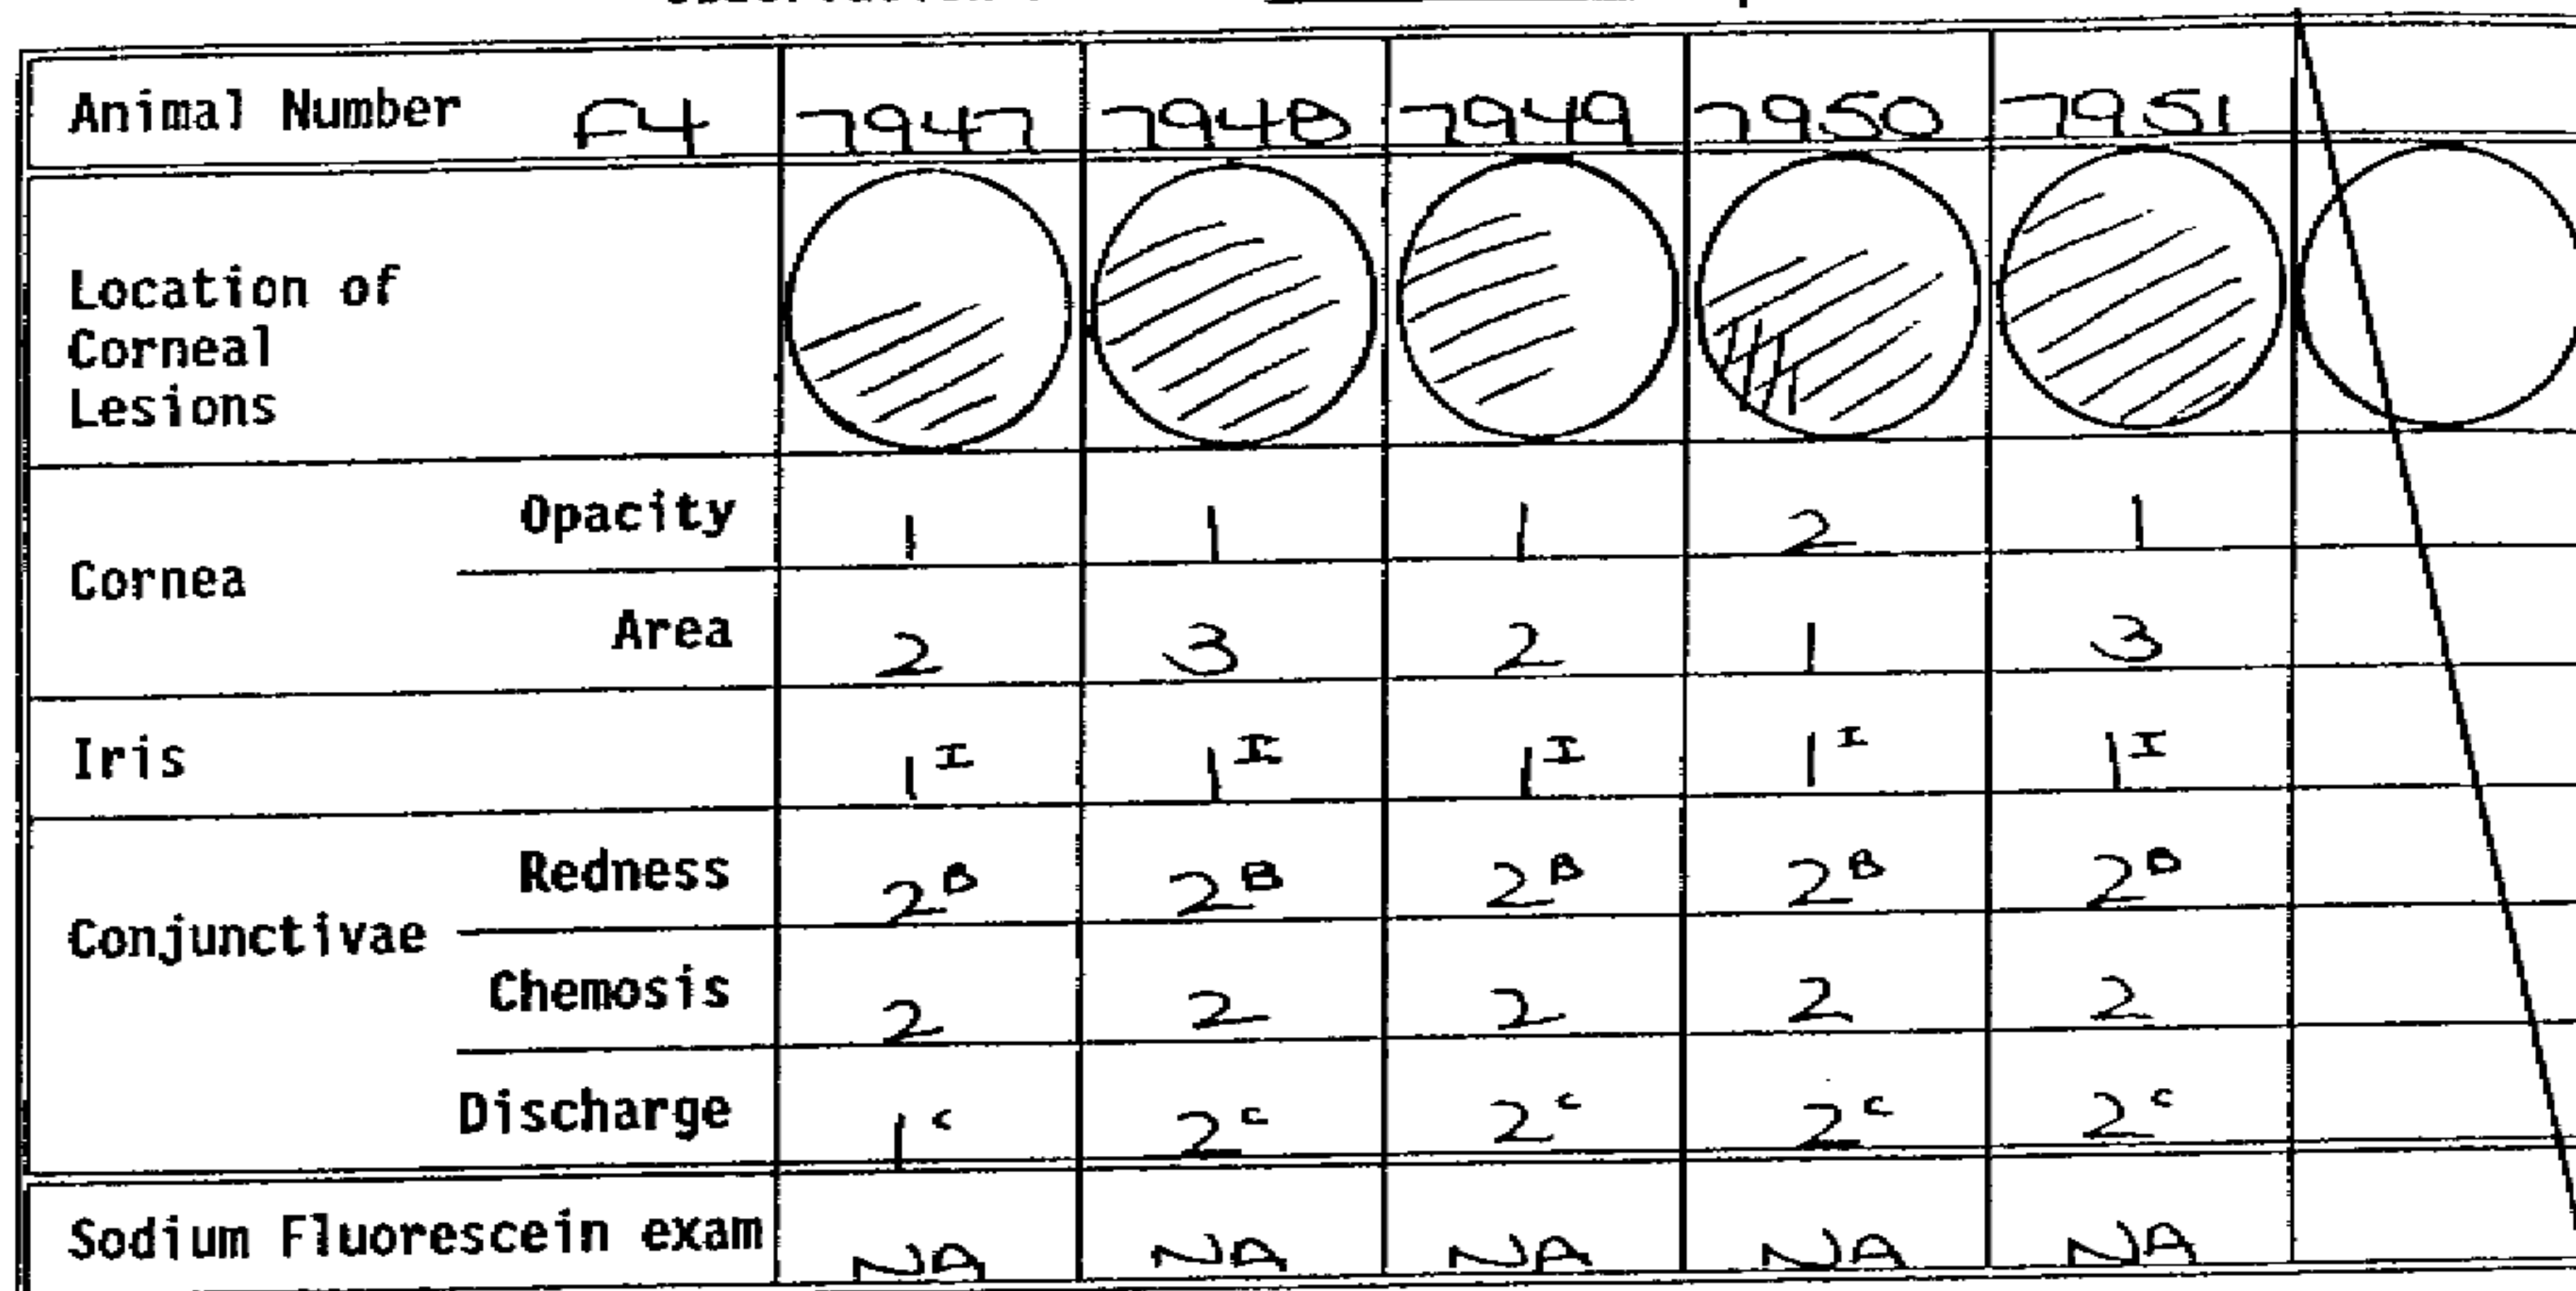 Animal Number F4 7947 7948 7949 7950 7951
Location of
Corneal
Lesions
Cornea
Opacity 1 1 1 2 1
Area 2 3 2 1 3
Iris 1 I 1 I 1 I 1 I 1 I
Conjunctivae
Redness 2 B 2 B 2 B 2 B 2 B
Chemosis 2 2 2 2 2
Discharge 1 c 2 c 2 c 2 c 2 c
Sodium Fluorescein exam NA NA NA NA NA